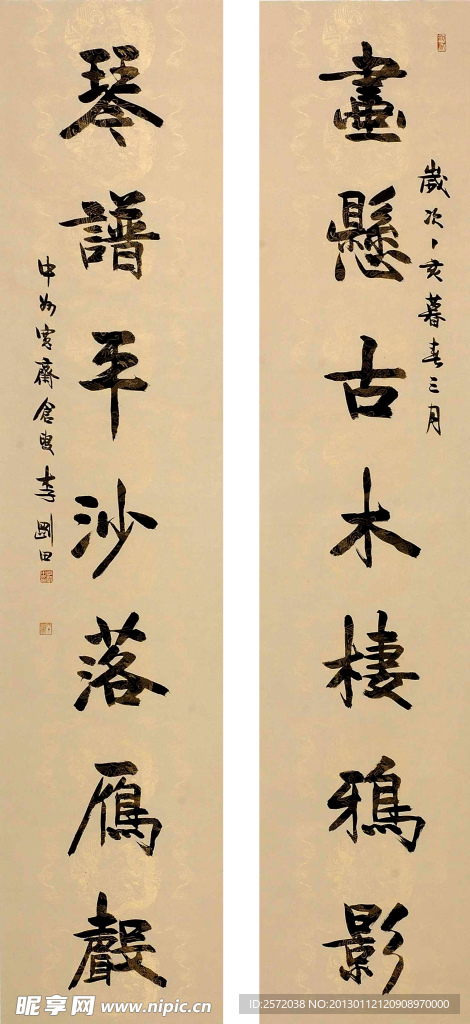 畫懸古木棲鴉影
歲次亥暮春三月
琴譜平沙落鴈聲
中州寬齋倉叟李剛田
昵享网 www.nipic.cn
ID:2572038 NO:20130112120908970000